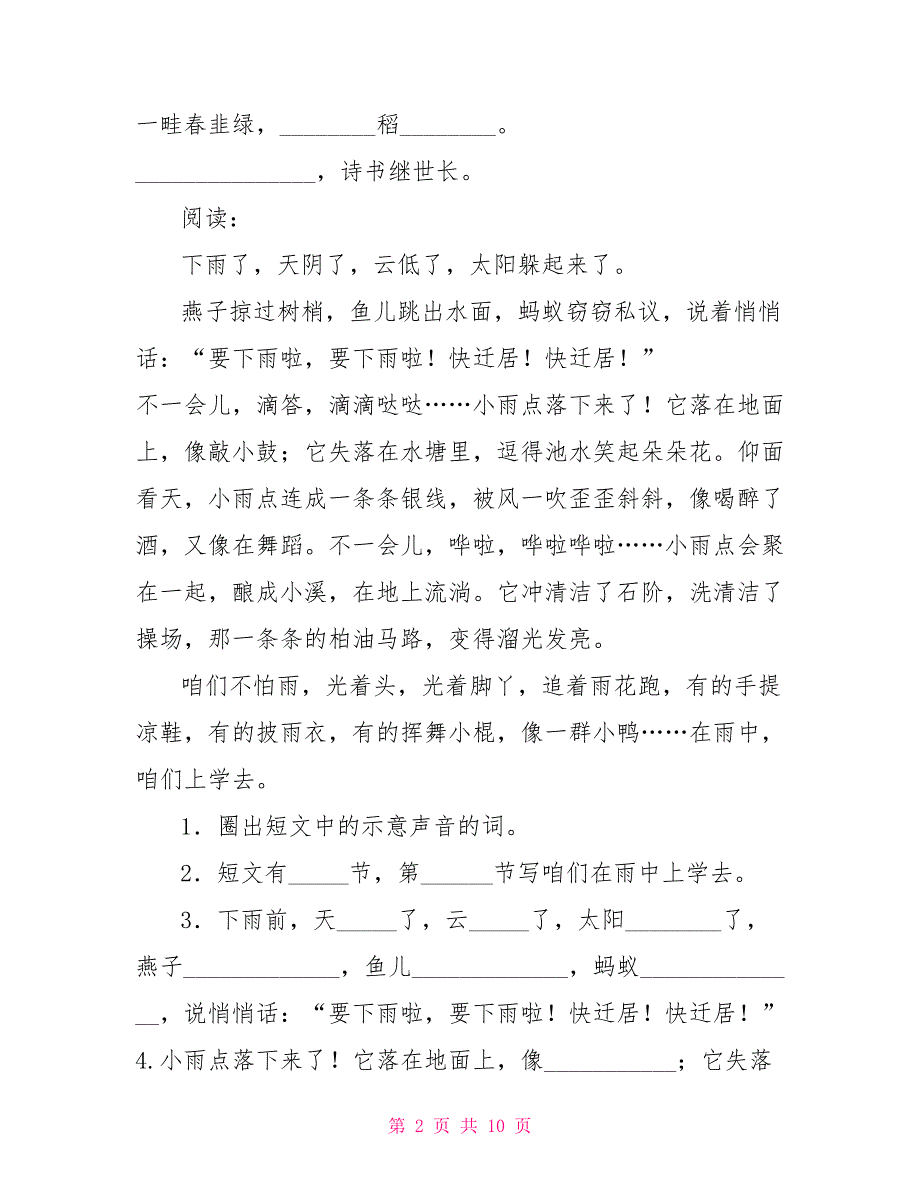 一畦春韭绿，________稻________。
_______________，诗书继世长。
阅读：
下雨了，天阴了，云低了，太阳躲起来了。
燕子掠过树梢，鱼儿跳出水面，蚂蚁窃窃私议，说着悄悄
话：“要下雨啦，要下雨啦！快迁居！快迁居！”
不一会儿，滴答，滴滴哒哒……小雨点落下来了！它落在地面
上，像敲小鼓；它失落在水塘里，逗得池水笑起朵朵花。仰面
看天，小雨点连成一条条银线，被风一吹歪歪斜斜，像喝醉了
酒，又像在舞蹈。不一会儿，哗啦，哗啦哗啦……小雨点会聚
在一起，酿成小溪，在地上流淌。它冲清洁了石阶，洗清洁了
操场，那一条条的柏油马路，变得溜光发亮。
咱们不怕雨，光着头，光着脚丫，追着雨花跑，有的手提
凉鞋，有的披雨衣，有的挥舞小棍，像一群小鸭……在雨中，
咱们上学去。
1．圈出短文中的示意声音的词。
2．短文有_____节，第______节写咱们在雨中上学去。
3．下雨前，天_____了，云_____了，太阳________了，
燕子_____________，鱼儿_____________，蚂蚁____________
__，说悄悄话：“要下雨啦，要下雨啦！快迁居！快迁居！”
4.小雨点落下来了！它落在地面上，像___________；它失落
第 2 页 共 10 页